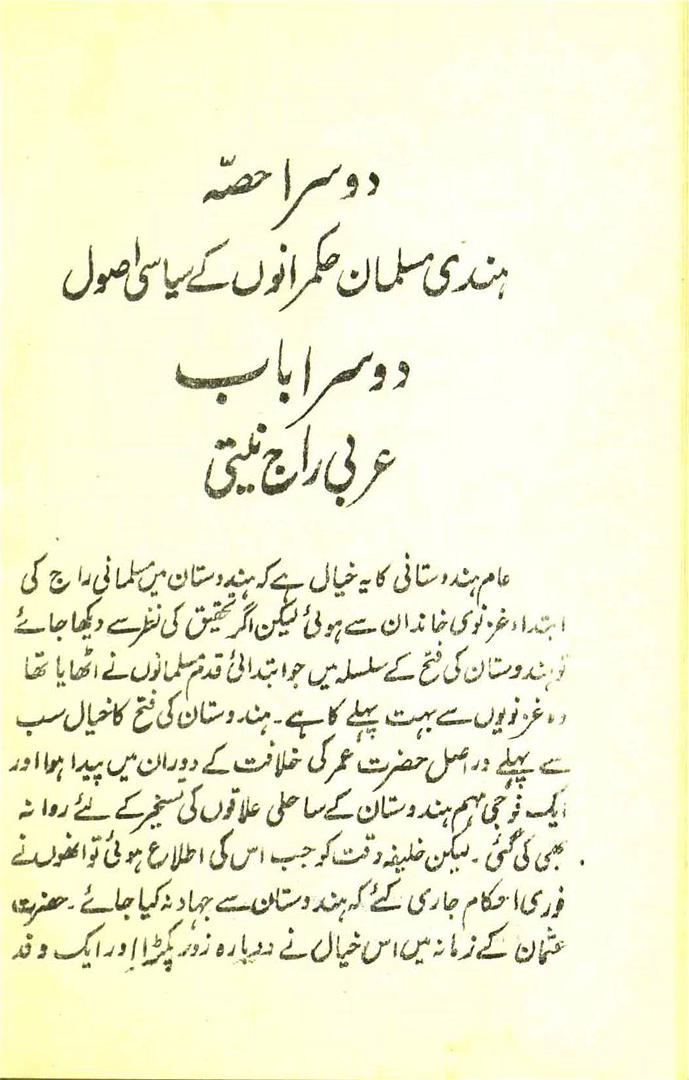 دوسرا حصّہ
ہندی مسلمان حکمرانوں کے سیاسی اصول
دوسرا باب
عربی راج نیتی
عام ہندوستانی کا یہ خیال ہے کہ ہندوستان میں مسلمانی راج کی
ابتداء غزنوی خاندان سے ہوئی لیکن اگر تحقیق کی نظر سے دیکھا جائے
تو ہندوستان کی فتح کے سلسلہ میں جو ابتدائی قدم مسلمانوں نے اٹھایا تھا
وہ غزنویوں سے بہت پہلے کا ہے۔ ہندوستان کی فتح کا خیال سب
سے پہلے دراصل حضرت عمر کی خلافت کے دوران میں پیدا ہوا اور
ایک فوجی مہم ہندوستان کے ساحلی علاقوں کی تسخیر کے لئے روانہ
بھی کی گئی۔ لیکن خلیفہ وقت کو جب اس کی اطلاع ہوئی تو انھوں نے
فوری احکام جاری کئے کہ ہندوستان سے جہاد نہ کیا جائے۔ حضرت
عثمان کے زمانہ میں اس خیال نے دوبارہ زور پکڑا اور ایک وفد